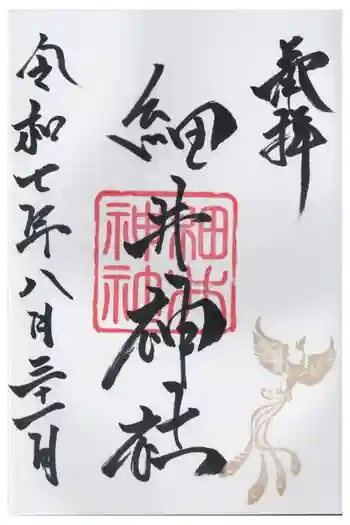 奉拝
細井神社
細井
神社
令和七年八月三十一日